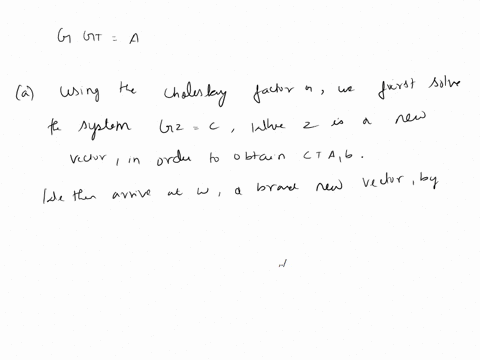 G GT = A
(a) Using the Cholesky factor n, we first solve
the system Gz = c, where z is a new
vector, in order to obtain C T A, b.
We then arrive at w, a brand new vector, by